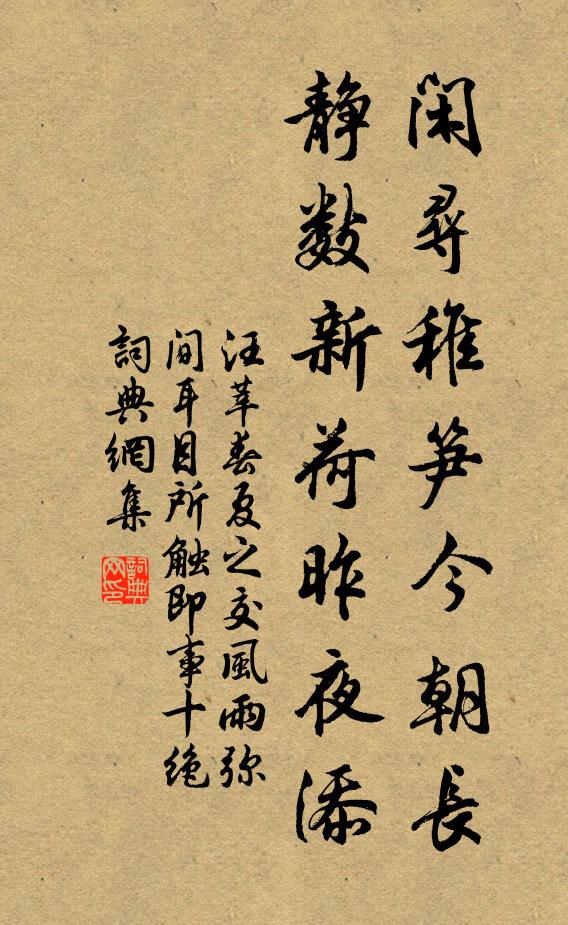 閑尋稚笋今朝長
静数新荷昨夜添
汪莘春夏之交風雨弥
间耳目所触即事十绝
詞典網集
詞典网印